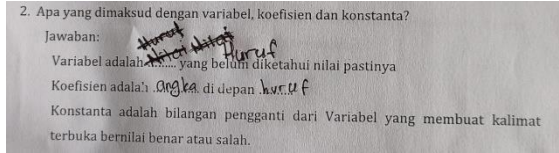 2. Apa yang dimaksud dengan variabel, koefisien dan konstanta?
Jawaban:
Variabel adalah Huruf yang belum diketahui nilai pastinya
Koefisien adalah angka di depan huruf
Konstanta adalah bilangan pengganti dari Variabel yang membuat kalimat
terbuka bernilai benar atau salah.